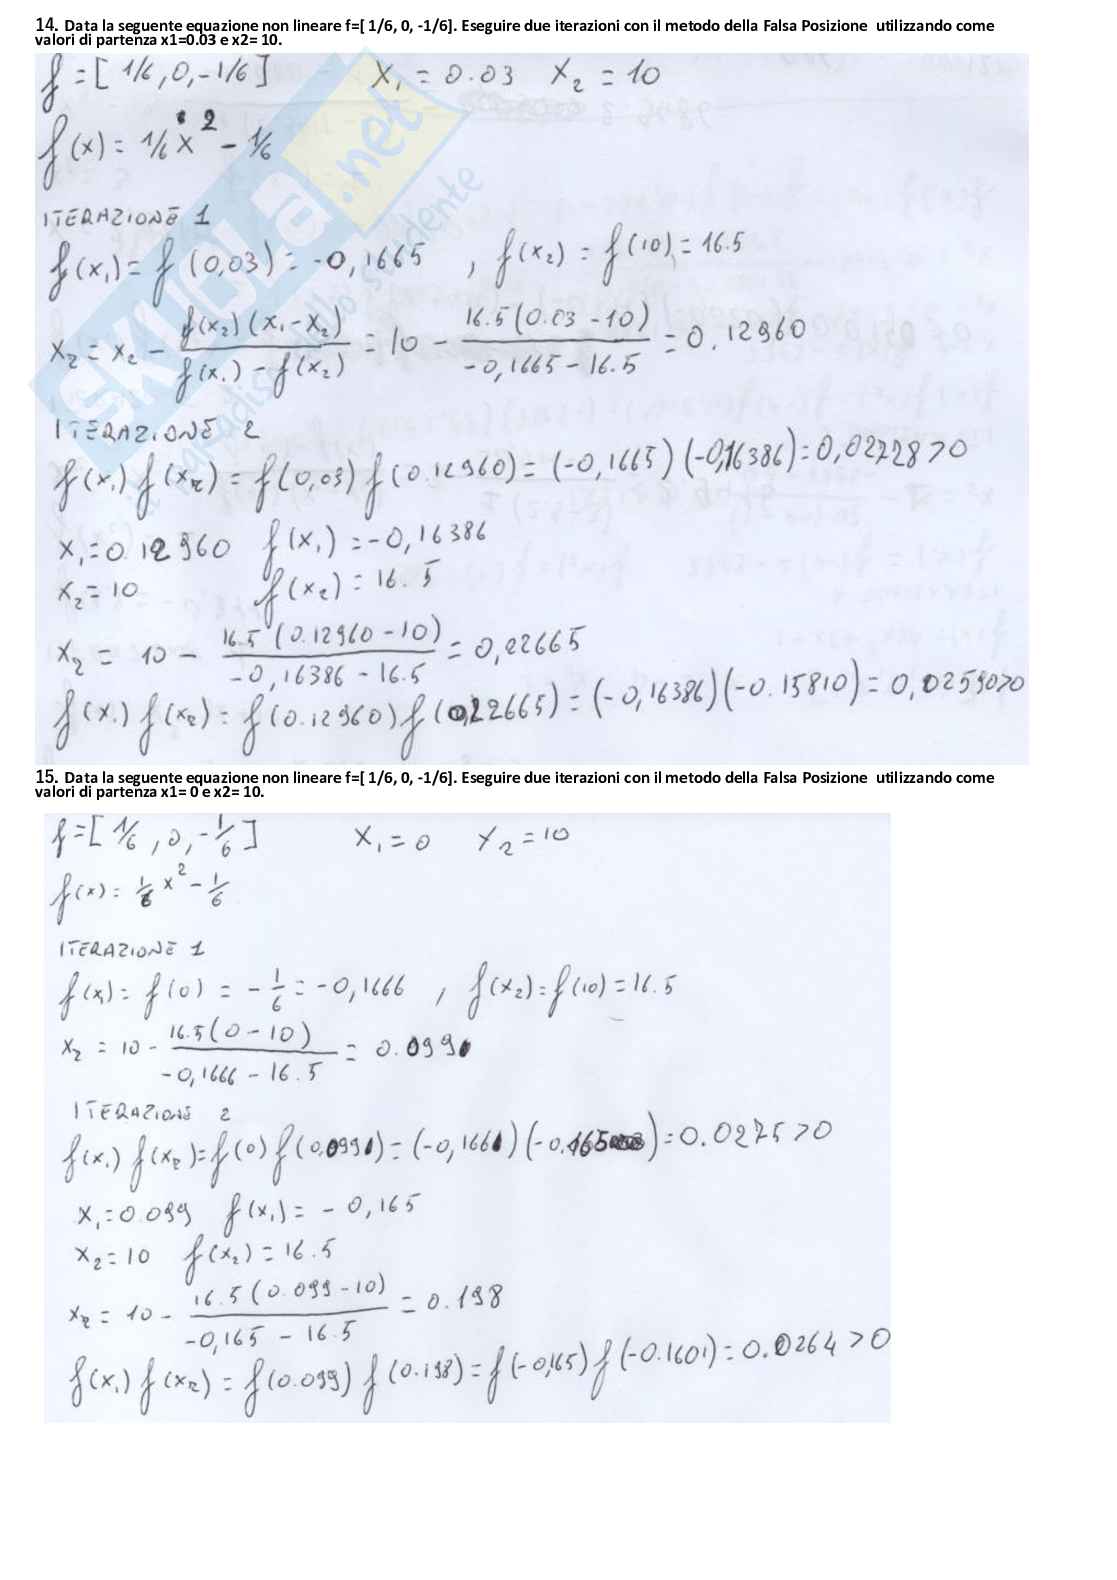 14. Data la seguente equazione non lineare f=[ 1/6, 0, -1/6]. Eseguire due iterazioni con il metodo della Falsa Posizione utilizzando come
valori di partenza x1=0.03 e x2= 10.
f = [ 1/6, 0, -1/6 ] x₁ = 0.03 x₂ = 10
f(x) = 1/6 x² - 1/6
ITERAZIONE 1
f(x₁) = f(0,03) = -0,1665 , f(x₂) = f(10) = 16.5
xr = x₂ - f(x₂)(x₁-x₂) / f(x₁) - f(x₂) = 10 - 16.5(0.03 - 10) / -0,1665 - 16.5 = 0.12960
ITERAZIONE 2
f(x₁) f(xr) = f(0,03) f(0.12960) = (-0,1665)(-0,16386) = 0,02728 > 0
x₁ = 0.12960 f(x₁) = -0,16386
x₂ = 10 f(x₂) = 16.5
xr = 10 - 16.5 (0.12960 - 10) / -0,16386 - 16.5 = 0,22665
f(x₁) f(xr) = f(0.12960) f(0,22665) = (-0,16386)(-0.15810) = 0,02590 > 0
SKUOLA.net
15. Data la seguente equazione non lineare f=[ 1/6, 0, -1/6]. Eseguire due iterazioni con il metodo della Falsa Posizione utilizzando come
valori di partenza x1= 0 e x2= 10.
f = [ 1/6, 0, -1/6 ] x₁ = 0 x₂ = 10
f(x) = 1/6 x² - 1/6
ITERAZIONE 1
f(x₁) = f(0) = -1/6 = -0,1666 , f(x₂) = f(10) = 16.5
xr = 10 - 16.5(0 - 10) / -0,1666 - 16.5 = 0.099
ITERAZIONE 2
f(x₁) f(xr) = f(0) f(0,099) = (-0,166)(-0.165) = 0.0275 > 0
x₁ = 0.099 f(x₁) = - 0,165
x₂ = 10 f(x₂) = 16.5
xr = 10 - 16.5(0.099 - 10) / -0,165 - 16.5 = 0.198
f(x₁) f(xr) = f(0.099) f(0.198) = f(-0,165) f(-0.1601) = 0.0264 > 0